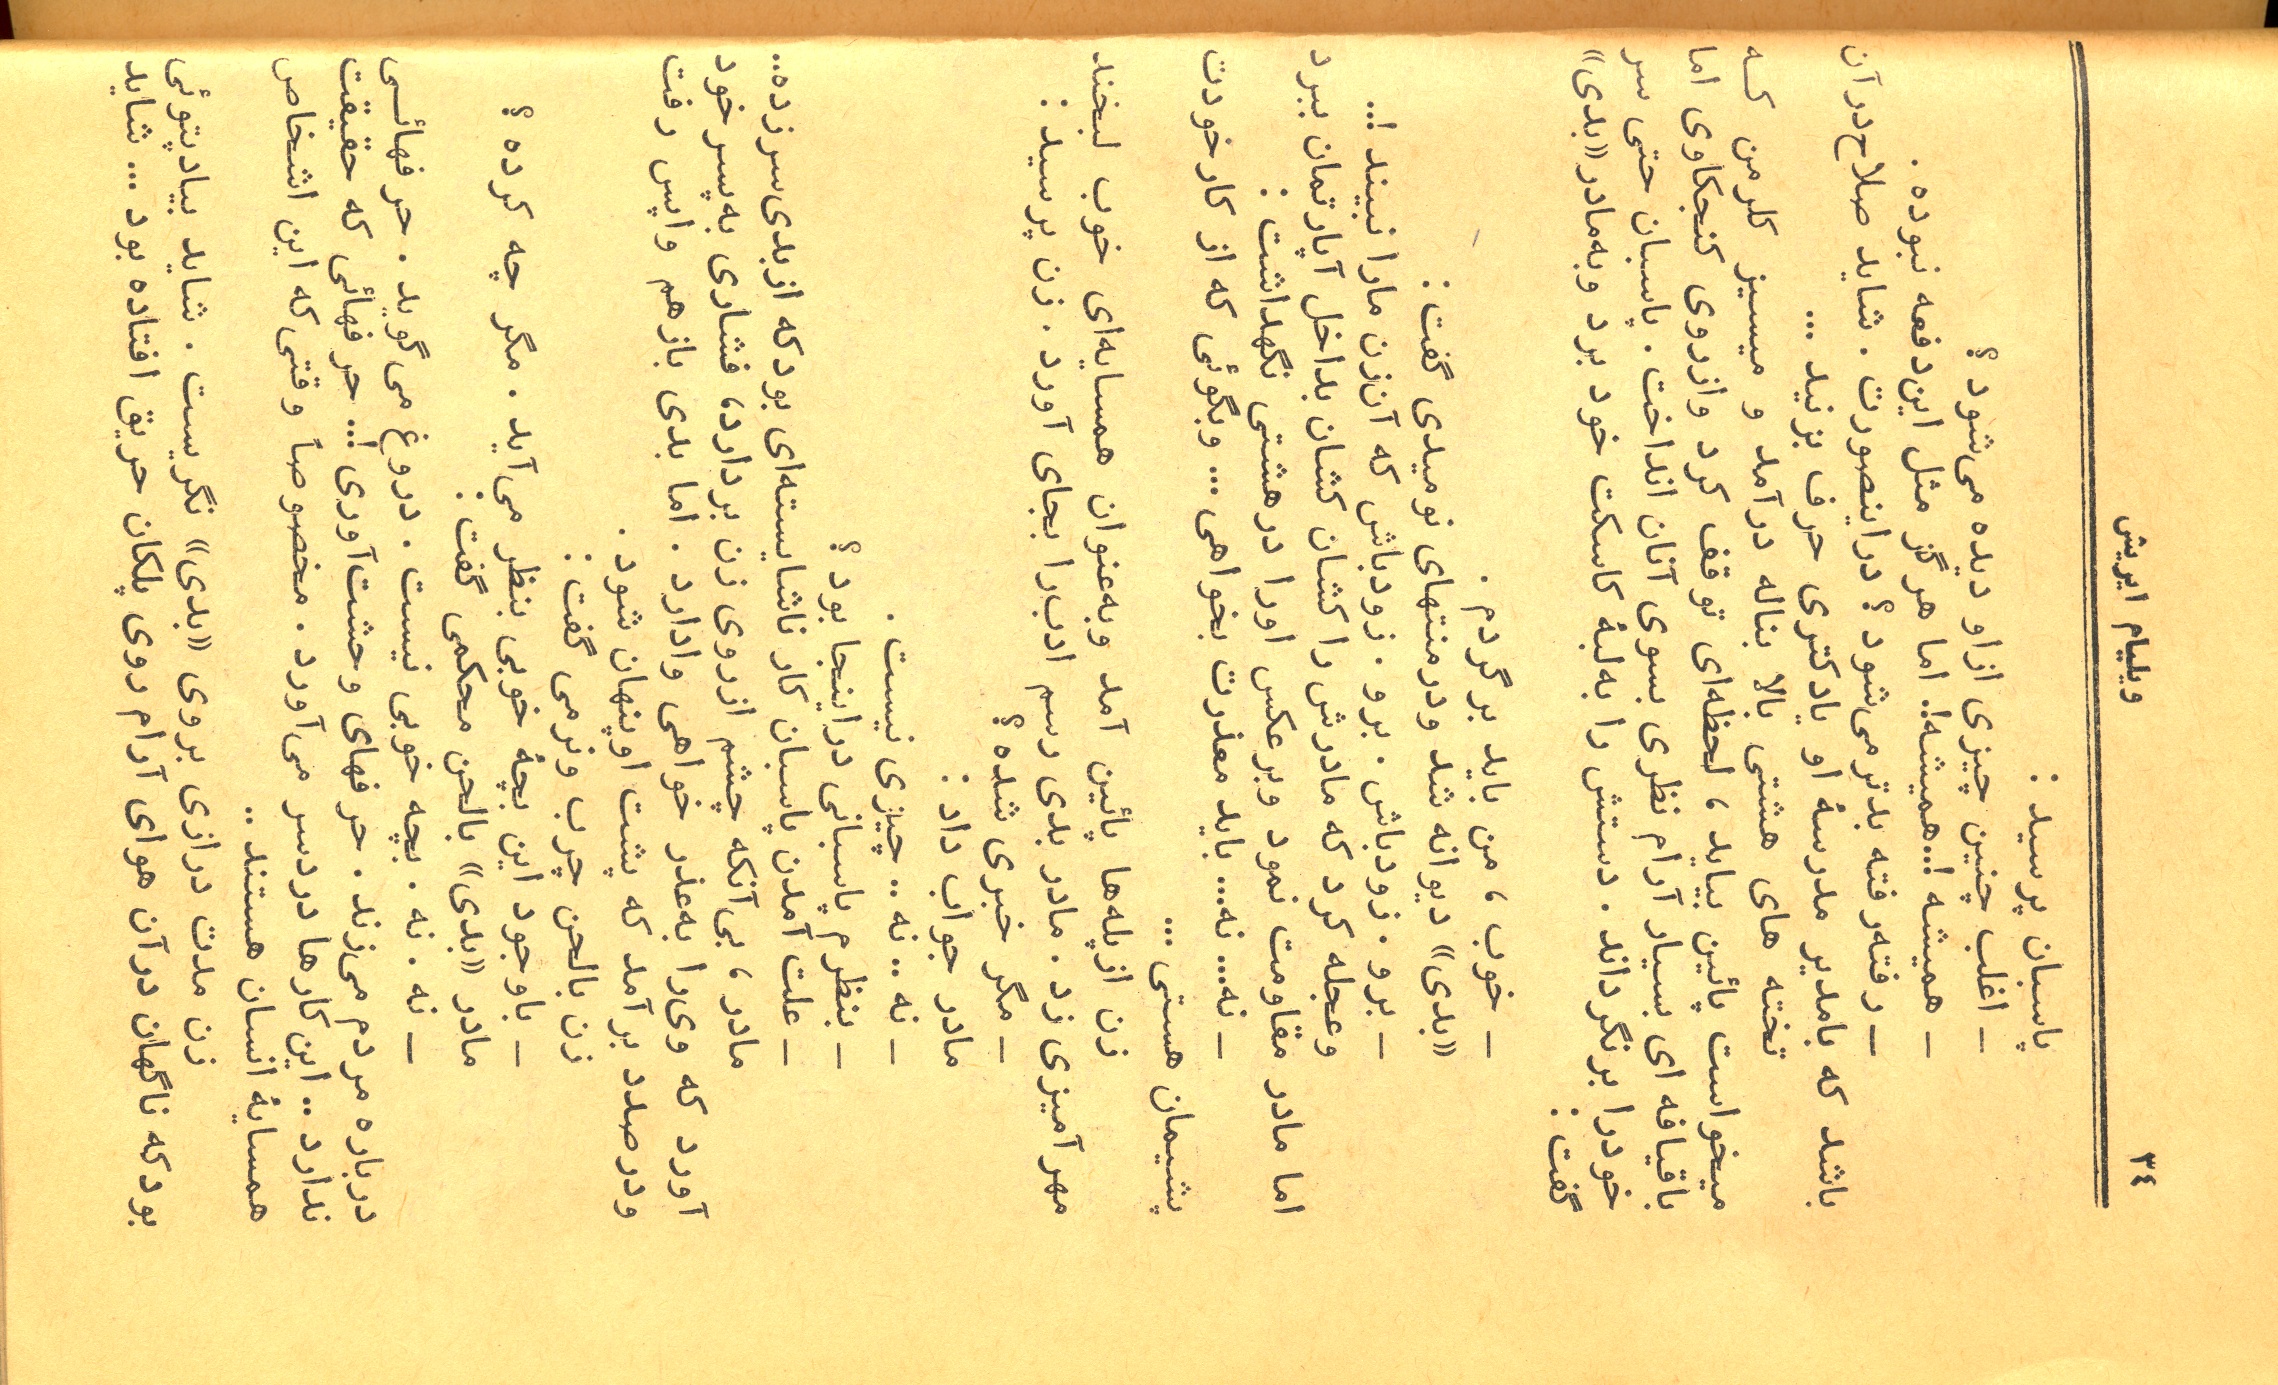 ۳٤
ویلیام ایریش
پاسبان پرسید :
— اغلب چنین چیزی ازاو دیده می‌شود ؟
— همیشه !..همیشه!.. اما هرگز مثل این‌دفعه نبوده .
— رفته‌رفته بدتر می‌شود ؟ دراینصورت . شاید صلاح‌درآن
باشد که بامدیر مدرسهٔ او یادکتری حرف بزنید ...
تخته های هشتی بالا بناله درآمد و میسیز کلرمن کـه
میخواست پائین بیاید ، لحظه‌ای توقف کرد وازروی کنجکاوی اما
باقیافه ای بسیار آرام نظری بسوی آنان انداخت . پاسبان حتی سر
خودرا برنگرداند . دستش را به‌لبهٔ کاسکت خود برد وبه‌مادر«بدی»
گفت :
— خوب ، من باید برگردم .
«بدی» دیوانه شد ودرمنتهای نومیدی گفت :
— برو . زودباش . برو . زودباش که آن‌زن مارا نبیند !...
وعجله کرد که مادرش را کشان کشان بداخل آپارتمان ببرد
اما مادر مقاومت نمود وبرعکس اورا درهشتی نگهداشت :
— نه... نه... باید معذرت بخواهی ... وبگوئی که از کارخودت
پشیمان هستی ...
زن ازپله‌ها پائین آمد وبه‌عنوان همسایه‌ای خوب لبخند
مهر آمیزی زد . مادر بدی رسم ادب‌را بجای آورد . زن پرسید :
— مگر خبری شده ؟
مادر جواب داد :
— نه .. نه .. چیزی نیست .
— بنظرم پاسبانی دراینجا بود ؟
— علت آمدن پاسبان کار ناشایسته‌ای بودکه ازبدی‌سرزده..
مادر ، بی‌آنکه چشم ازروی زن بردارد، فشاری به‌پسرخود
آورد که وی‌را به‌عذر خواهی وادارد . اما بدی بازهم واپس رفت
ودرصدد برآمد که پشت اوپنهان شود .
زن بالحن چرب ونرمی گفت :
— باوجود این بچهٔ خوبی بنظر می‌آید . مگر چه کرده ؟
مادر «بدی» بالحن محکمی گفت :
— نه . نه . بچه خوبی نیست . دروغ می‌گوید . حرفهائـی
درباره مردم می‌زند . حرفهای وحشت‌آوری !... حرفهائی که حقیقت
ندارد .. این‌کارها دردسر می‌آورد . مخصوصاً وقتی‌که این اشخاص
همسایهٔ انسان هستند ..
زن مدت درازی بروی «بدی» نگریست . شاید بیادپتوئی
بودکه ناگهان درآن هوای آرام روی پلکان حریق افتاده بود ... شاید